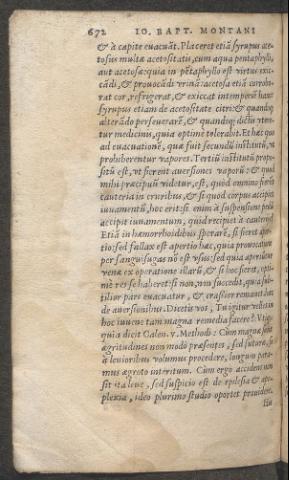 672 IO. BAPT. MONTANI
& à capite euacuāt. Placeret etiā syrupus ace
tosius multæ acetositatis, cum aqua pentaphylli,
aut acetosæ: quia in pētaphyllo est virtus exic
cādi, & prouocādi vrinā: acetosa etiā corobo
rat cor, refrigerat, & exiccat intemperiē hanc
syrupus etiam de acetositate citri: & quandoq;
alterādo perseuerarē, & quandoq; dictū vten
tur medicinis, quia optimè tolerabit. Et hæc quo
ad euacuationē, quæ fuit secundū institutū, vt
prohiberentur vapores. Tertiū institutū propo-
sitū est, vt fierent auersiones vaporū: & quod
mihi præcipuū videtur, est, quòd omnino fierēt
cauteria in cruribus, & si quod corpus accipiet
iuuamentū, hoc erit: si enim à suspensione pedū
accipit iuuamentum, quid recipiet à cauterijs?
Etiā in hæmorrhoidibus sperarē, si fieret aper-
tio: sed fallax est apertio hæc, quia prouocatur
per sanguisugas nō est vsus: sed quia aperiuntur
venæ ex operatione illarū, & si hoc fieret, opti-
mè res se haberet: si non, non succedit, quia sub
tilior pars euacuatur, & crassior remanet hæc
de auersionibus. Dicetis vos, Tu igitur vellet in
hoc iuuene tam magna remedia facere? Vtiq;
quia dicit Galen. 7. Method: Cùm magnæ sunt
ægritudines non modò præsentes, sed futuræ, si
à leuioribus volumus procedere, longum para-
mus ægroto interitum. Cùm ergo accidens non
sit ita leue, sed suspicio est de epilesia & apo-
plexia, ideo plurimo studio oportet prouidere.